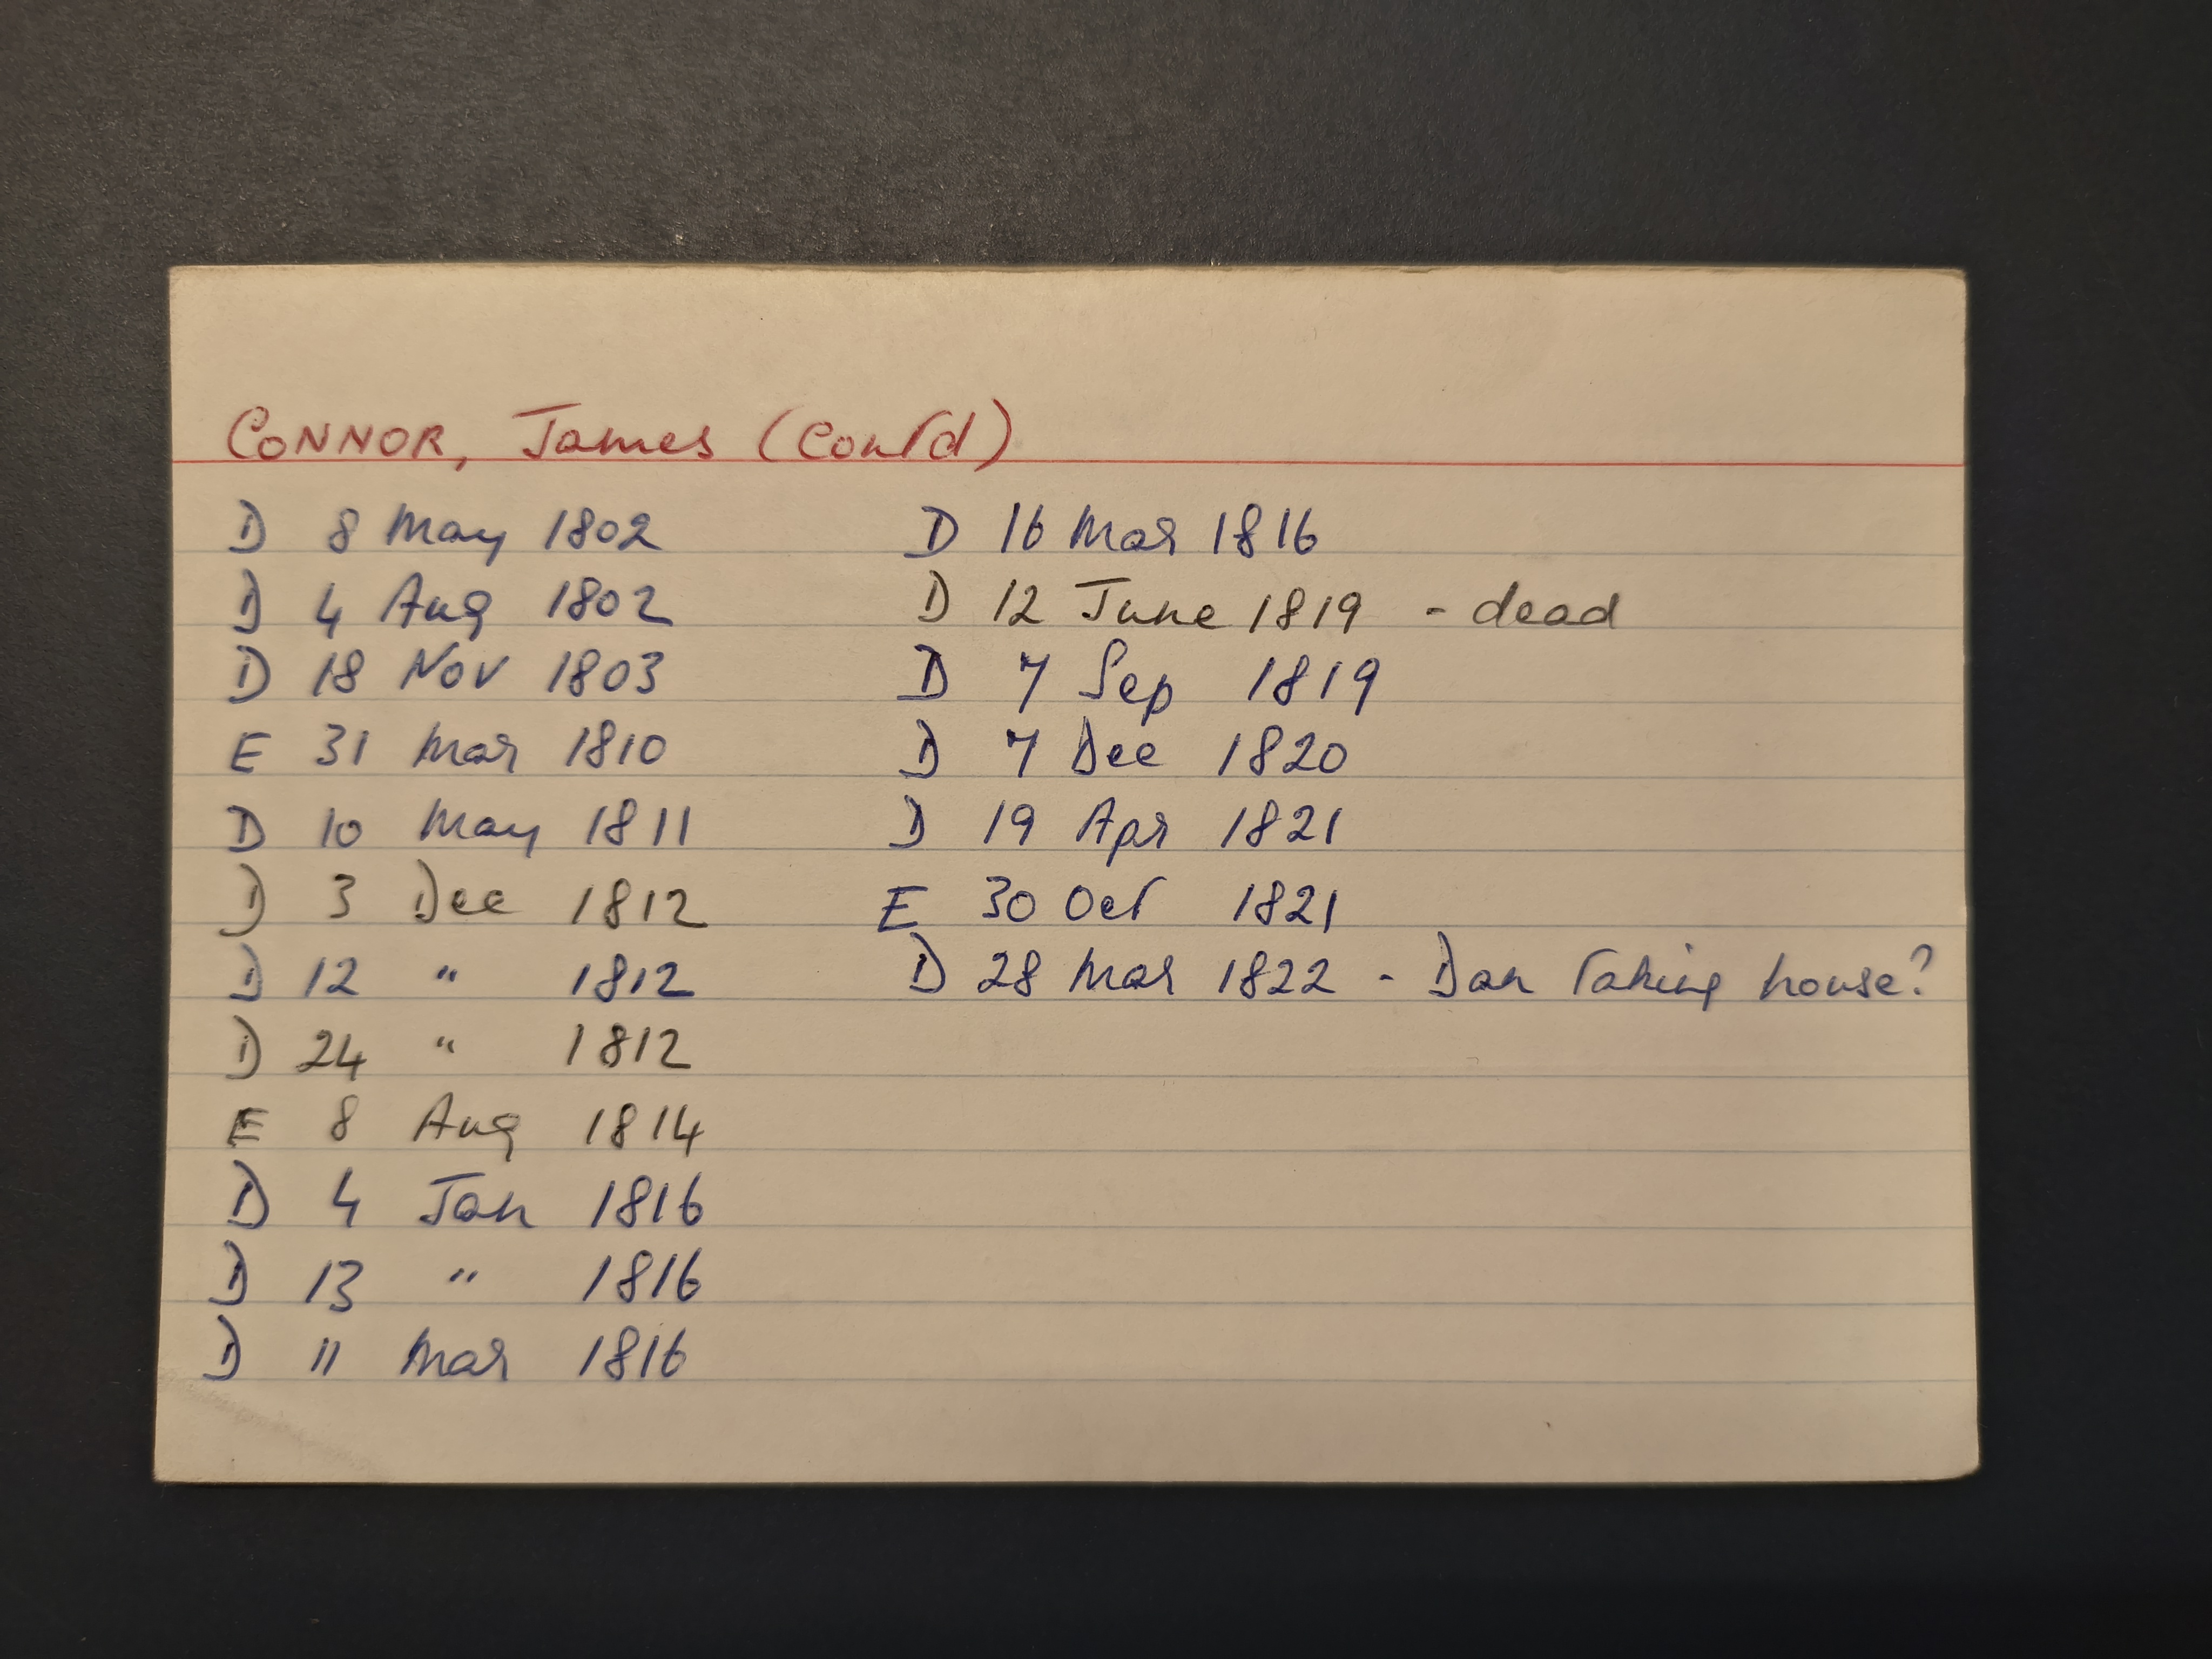 CONNOR, James (Cont'd)
D 8 May 1802
D 4 Aug 1802
D 18 Nov 1803
E 31 Mar 1810
D 10 May 1811
D 3 Dec 1812
D 12 " 1812
D 24 " 1812
E 8 Aug 1814
D 4 Jan 1816
D 13 " 1816
D 11 Mar 1816
D 16 Mar 1816
D 12 June 1819 - dead
D 7 Sep 1819
D 7 Dec 1820
D 19 Apr 1821
E 30 Oct 1821
D 28 Mar 1822 - Dan taking house?